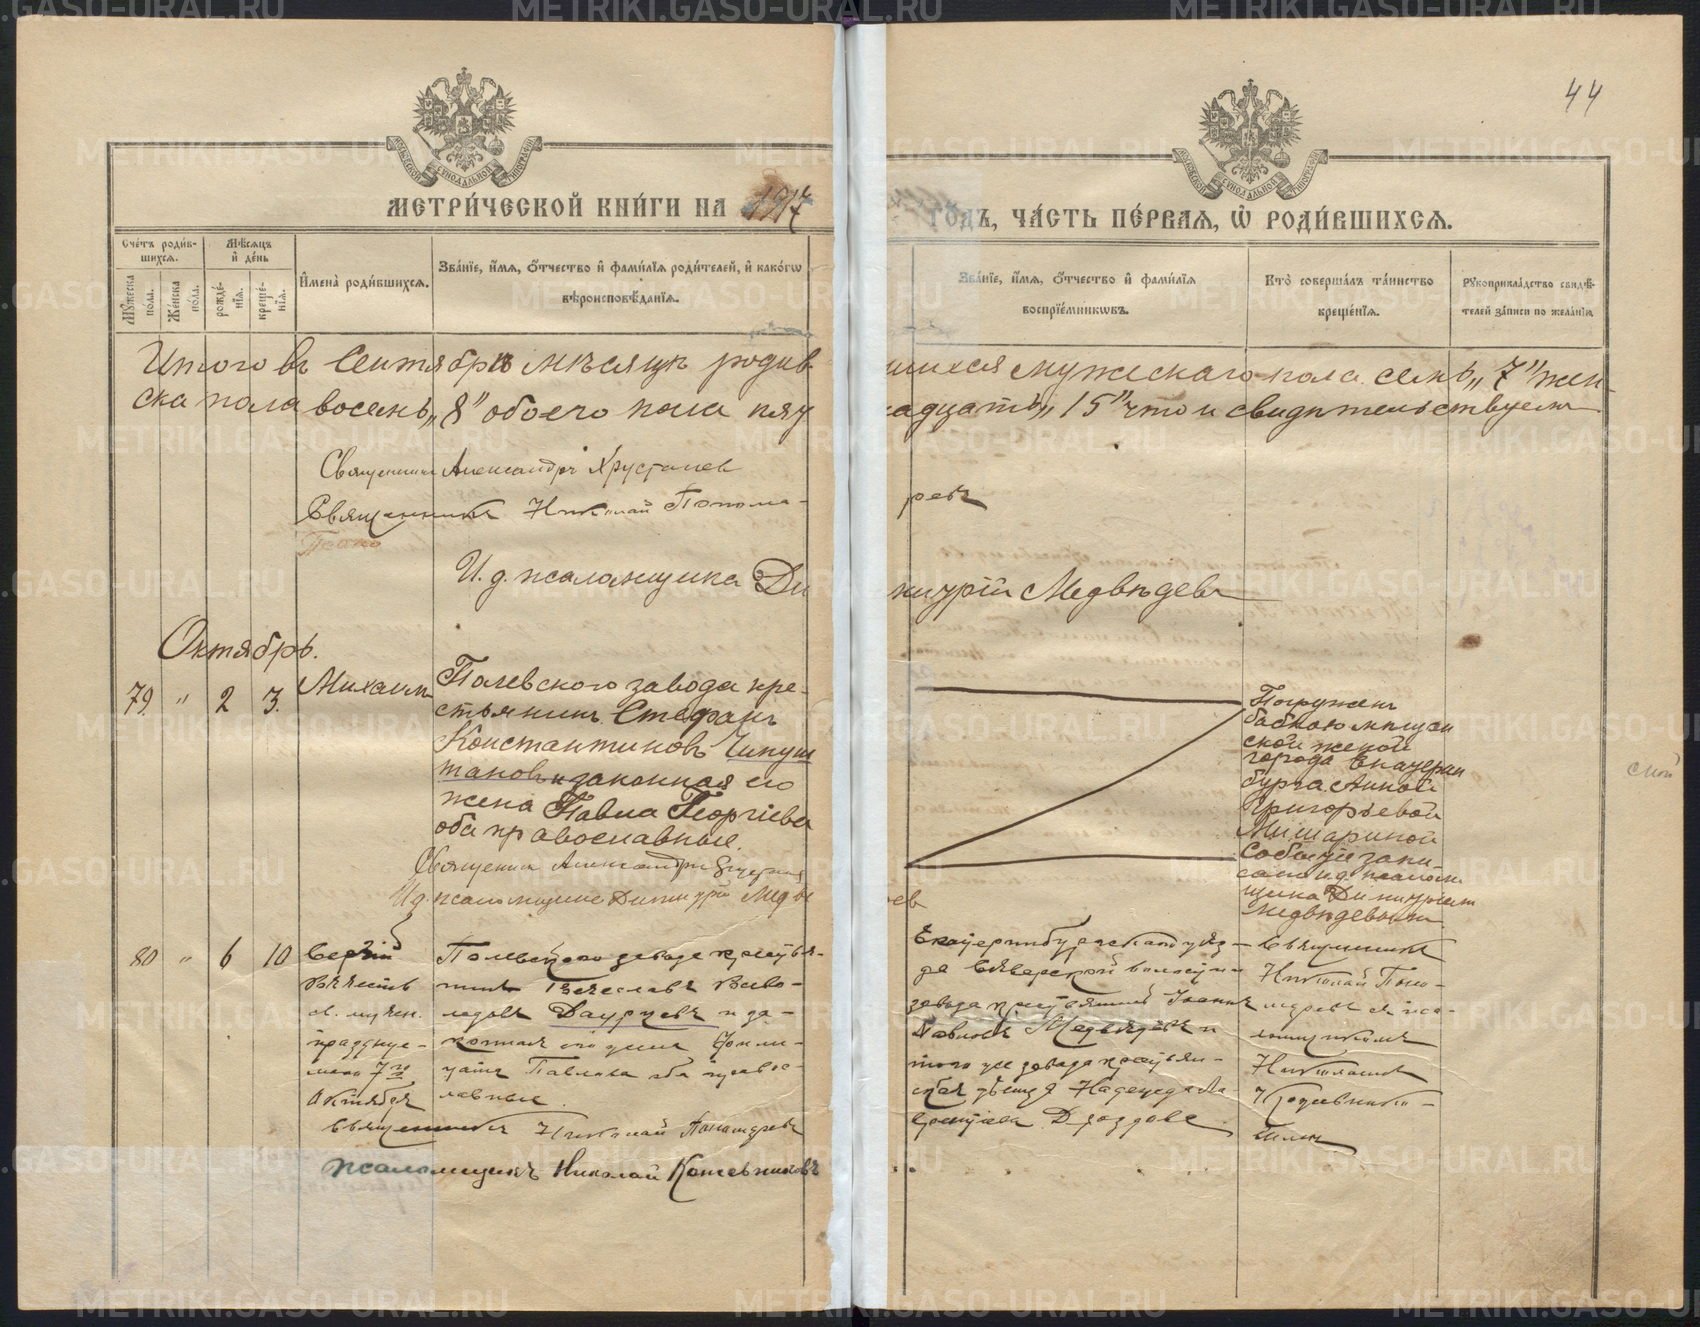 44
МЕТРИ́ЧЕСКОЙ КНИ́ГИ НА 1917
ГОДЪ, ЧА́СТЬ ПЕ́РВАЯ, Ѡ҆ РОДИ́ВШИХСЯ.
Сче́тъ роди́в-
шихся.
Мѣ́сяцъ
и҆ де́нь
Му́жеска
пола.
Же́нска
пола.
рожде́-
нїя.
креще́-
нїя.
И҆мена̀ роди́вшихся.
Зва́нїе, и҆́мя, ѻ҆́тчество и҆ фами́лїя роди́телей, и҆ како́гѡ
вѣроисповѣ́данїя.
Зва́нїе, и҆́мя, ѻ҆́тчество и҆ фами́лїя
воспрїе́мникѡвъ.
Кто̀ соверша́лъ та́инство
креще́нїя.
Рукоприкла́дство свидѣ́-
телей за́писи по жела́нїю.
Итого въ Сентябрѣ мѣсяцѣ родив-
шихся мужескаго пола семь „7" жен-
ска пола восемь „8" обоего пола пят
надцать „15" что и свидѣтельствуемъ
Священникъ Александръ Хрусталев
Священникъ Николай Понома-
ревъ
И. д. псаломщика Ди
митрій Медвѣдевъ
Октябрь.
79. " 2 3. Михаилъ
Полевского завода кре-
стьянинъ Стефанъ
Константиновъ Чипуш
тановъ и законная его
жена Павла Георгіева
оба православные.
Священник Александръ
И.д. псаломщика Димитрій Медвѣ
дев
Погружен
бабкою мѣщан
ской женой
города Екатерин
бурга Анной
Григорьевой
Мишариной
записано и.д. псалом
щика Димитріем
Медвѣдевымъ
ской
80 " 6 10 Сергій
въ честь
св. мучен.
празднуе-
маго 7го
Октября
Полевского завода крестья-
нинъ Вячеславъ Всево-
лодовъ Даурцевъ и за-
конная его жена
Павлова оба правос-
лавные.
Священникъ Николай Пономаревъ
Псаломщикъ Николай Кожевниковъ
Екатеринбургскаго уѣз-
да Сѣверской волости и
завода крестьянинъ Іоаннъ
Павловъ Медвѣдевъ и
того же завода крестьян-
ская дѣвица Надежда Ла-
врентіева Дроздова.
Священникъ
Николай Поно-
маревъ съ пса-
ломщикомъ
Николаемъ
Кожевнико-
вымъ
METRIKI.GASO-URAL.RU